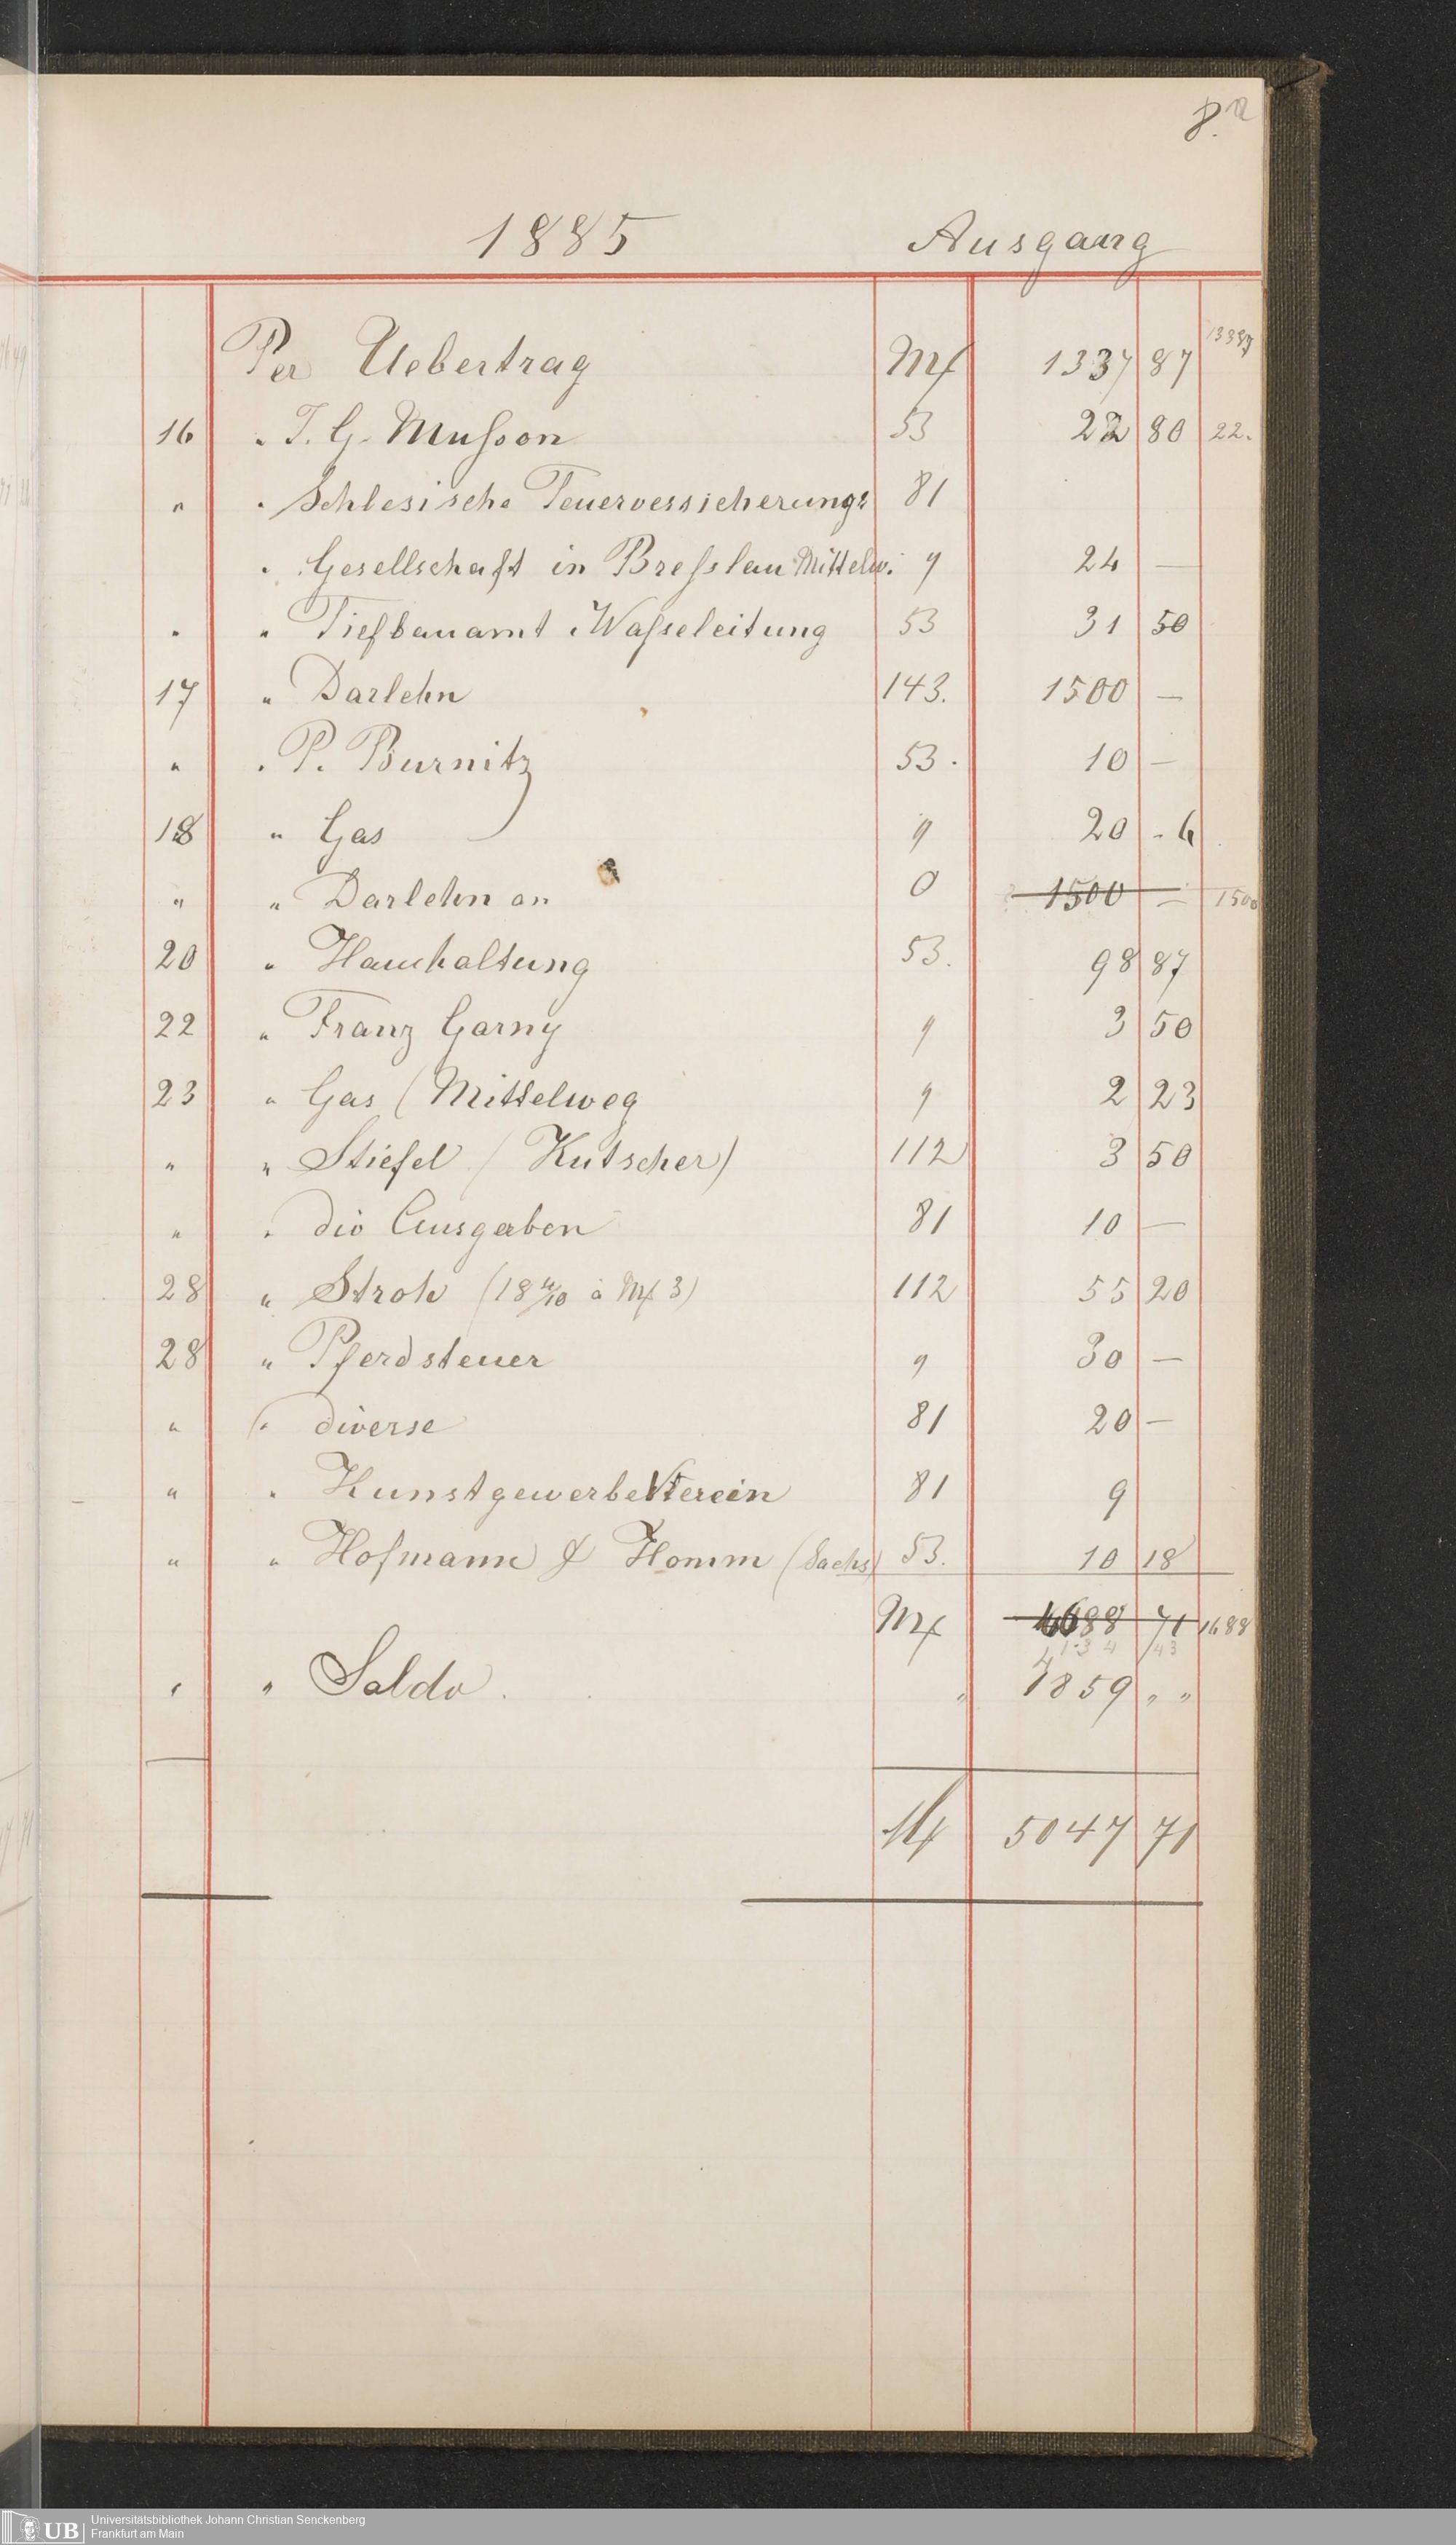 8.a
1885 Ausgang
Per Uebertrag M 1337 87 1338
16 " T. G. Muſson 53 22 80 22.
" " Schlesische Feuerversicherungs 81
" Gesellschaft in Breſslau Mittelw. 9 24 —
" " Tiefbauamt Waſseleitung 53 31 50
17 " Darlehn 143. 1500 —
" " P. Burnitz 53. 10 —
18 " Gas 9 20 - 6
" " Darlehn an 0 1500 — 1500
20 " Haushaltung 53. 98 87
22 " Franz Garny 9 3 50
23 " Gas (Mittelweg 9 2 23
" " Stiefel (Kutscher) 112 3 50
" " div Ausgaben 81 10 —
28 " Stroh (18 4/10 à M 3) 112 55 20
28 " Pferdsteuer 9 30 —
" " diverse 81 20 —
" " KunstgewerbeVerein 81 9
" " Hofmann & Homm (Sachs) 53. 10 18
M 4688 71 1688
" " Saldo. " 1859 " "
M 5047 71
UB Universitätsbibliothek Johann Christian Senckenberg
Frankfurt am Main